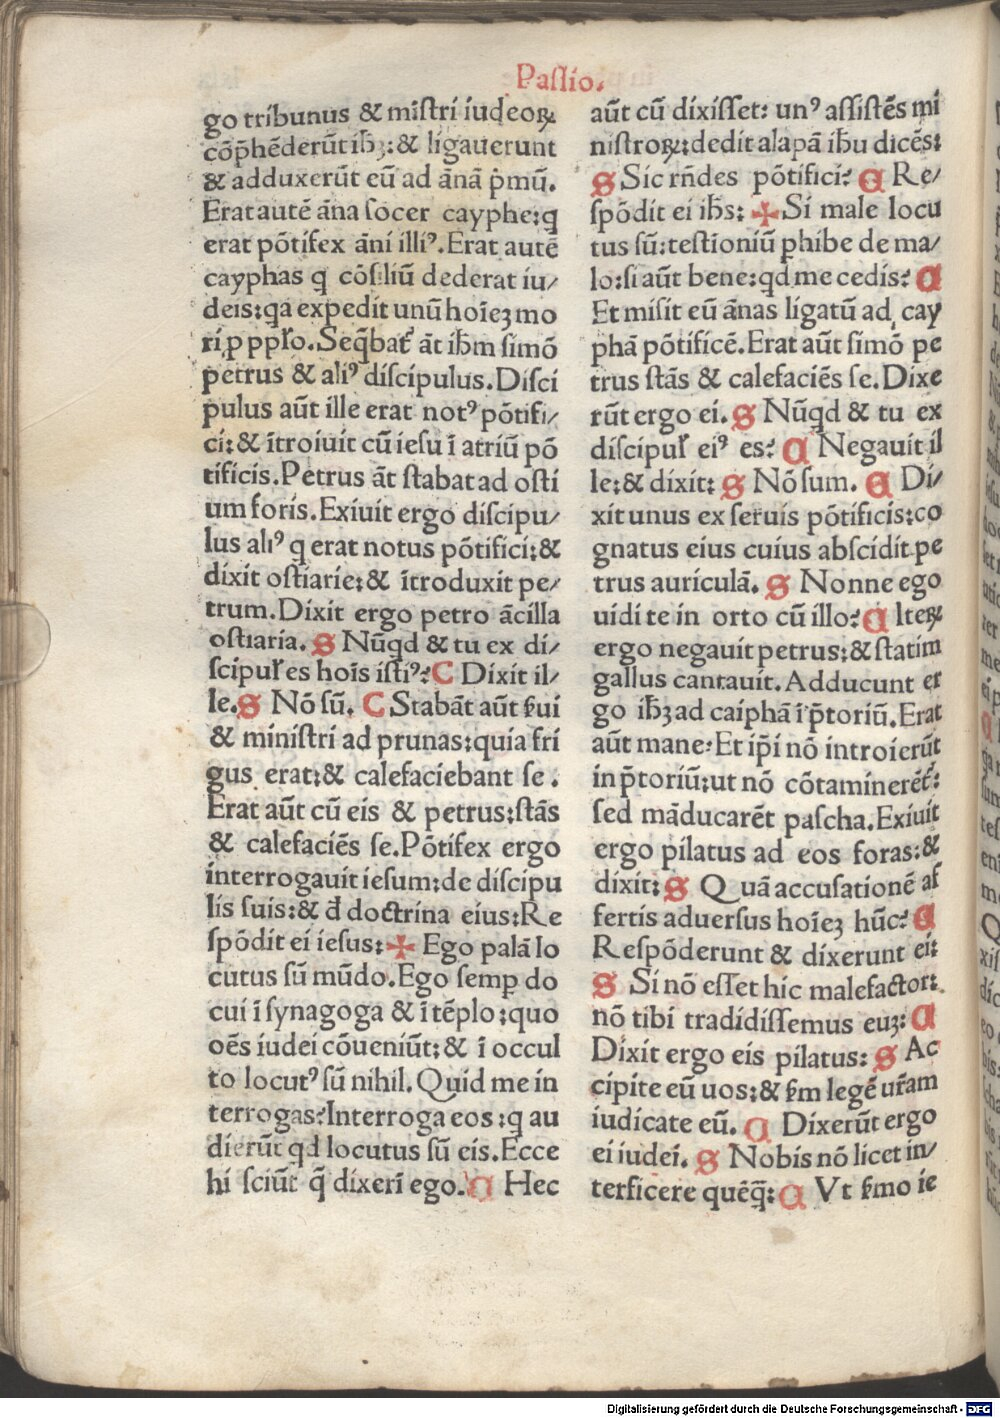 Paſſio.
go tribunus & miſtri iudeoꝝ
cōp̄hēderūt ih̄ꝫ:& ligauerunt
& adduxerūt eū ad ānā p̍mū.
Erat autē āna ſocer cayphe:q
erat pōtifex āni illiꝰ.Erat autē
cayphas q cōſiliū dederat iu⸗
deis:qa expedit unū hoīeꝫ mo
ri ꝓ pplo.Seq̄bat᷑ āt ih̄m ſimō
petrus & aliꝰ diſcipulus.Diſci
pulus aūt ille erat notꝰ pōtifi⸗
ci:& ītroiuit cū ieſu ī atriū pō
tificis.Petrus āt ſtabat ad oſti
um foris.Exiuit ergo diſcipu⸗
lus aliꝰ q erat notus pōtifici:&
dixit oſtiarie:& ītroduxit pe⸗
trum.Dixit ergo petro ācilla
oſtiaria. S Nūqd & tu ex di⸗
ſcipul̵ es hoīs iſtiꝰ? C Dixit il⸗
le. S Nō ſū. C Stabāt aūt ẜui
& miniſtri ad prunas:quia fri
gus erat:& calefaciebant ſe.
Erat aūt cū eis & petrus:ſtās
& calefaciēs ſe.Pōtifex ergo
interrogauit ieſum:de diſcipu
lis ſuis:& đ doctrina eius:Re
ſpōdit ei ieſus: ✠ Ego palā lo
cutus ſū mūdo.Ego ſemꝑ do
cui ī ſynagoga & ī tēplo:quo
oēs iudei cōueniūt:& ī occul
to locutꝰ ſū nihil.Quid me in
terrogas?Interroga eos:q au
dierūt qd locutus ſū eis.Ecce
hi ſciūt q̄ dixerī ego. C Hec
aūt cū dixiſſet: unꝰ aſſiſtēs mi
niſtroꝝ:dedit alapā ih̄u dicēs:
S Sic rn̄des pōtifici? C Re⸗
ſpōdit ei ih̄s: ✠ Si male locu
tus ſū:teſtioniū ꝑhibe de ma⸗
lo:ſi aūt bene:qd me cedis? C
Et miſit eū ānas ligatū ad cay
phā pōtificē.Erat aūt ſimō pe
trus ſtās & calefaciēs ſe.Dixe
rūt ergo ei. S Nūqd & tu ex
diſcipul̵ eiꝰ es? C Negauit il
le:& dixit: S Nō ſum. C Di⸗
xit unus ex ſeruis pōtificis:co
gnatus eius cuius abſcidit pe
trus auriculā. S Nonne ego
uidi te in orto cū illo? C Iteꝝ
ergo negauit petrus:& ſtatim
gallus cantauit.Adducunt er
go ih̄ꝫ ad caiphā ī p̄toriū.Erat
aūt mane:Et ip̄i nō introierūt
in p̄toriū:ut nō cōtaminerēt᷑:
ſed māducarēt paſcha.Exiuit
ergo pilatus ad eos foras:&
dixit: S Quā accuſationē af
fertis aduerſus hoīeꝫ hūc? C
Reſpōderunt & dixerunt ei:
S Si nō eſſet hic malefactor:
nō tibi tradidiſſemus euꝫ: C
Dixit ergo eis pilatus: S Ac
cipite eū uos:& ẜm legē ur̄am
iudicate eū. C Dixerūt ergo
ei iudei. S Nobis nō licet in⸗
terficere quēq̄: C Vt ẜmo ie
Digitalisierung gefördert durch die Deutsche Forschungsgemeinschaft - DFG